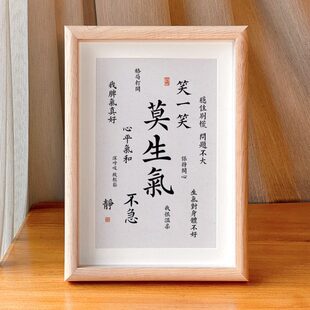 穩住別慌 問題不大
笑一笑
生氣對身體不好
保持開心
我很溫柔
格局打開
莫生氣
不急
心平氣和
深呼吸 放輕鬆
我脾氣真好
靜